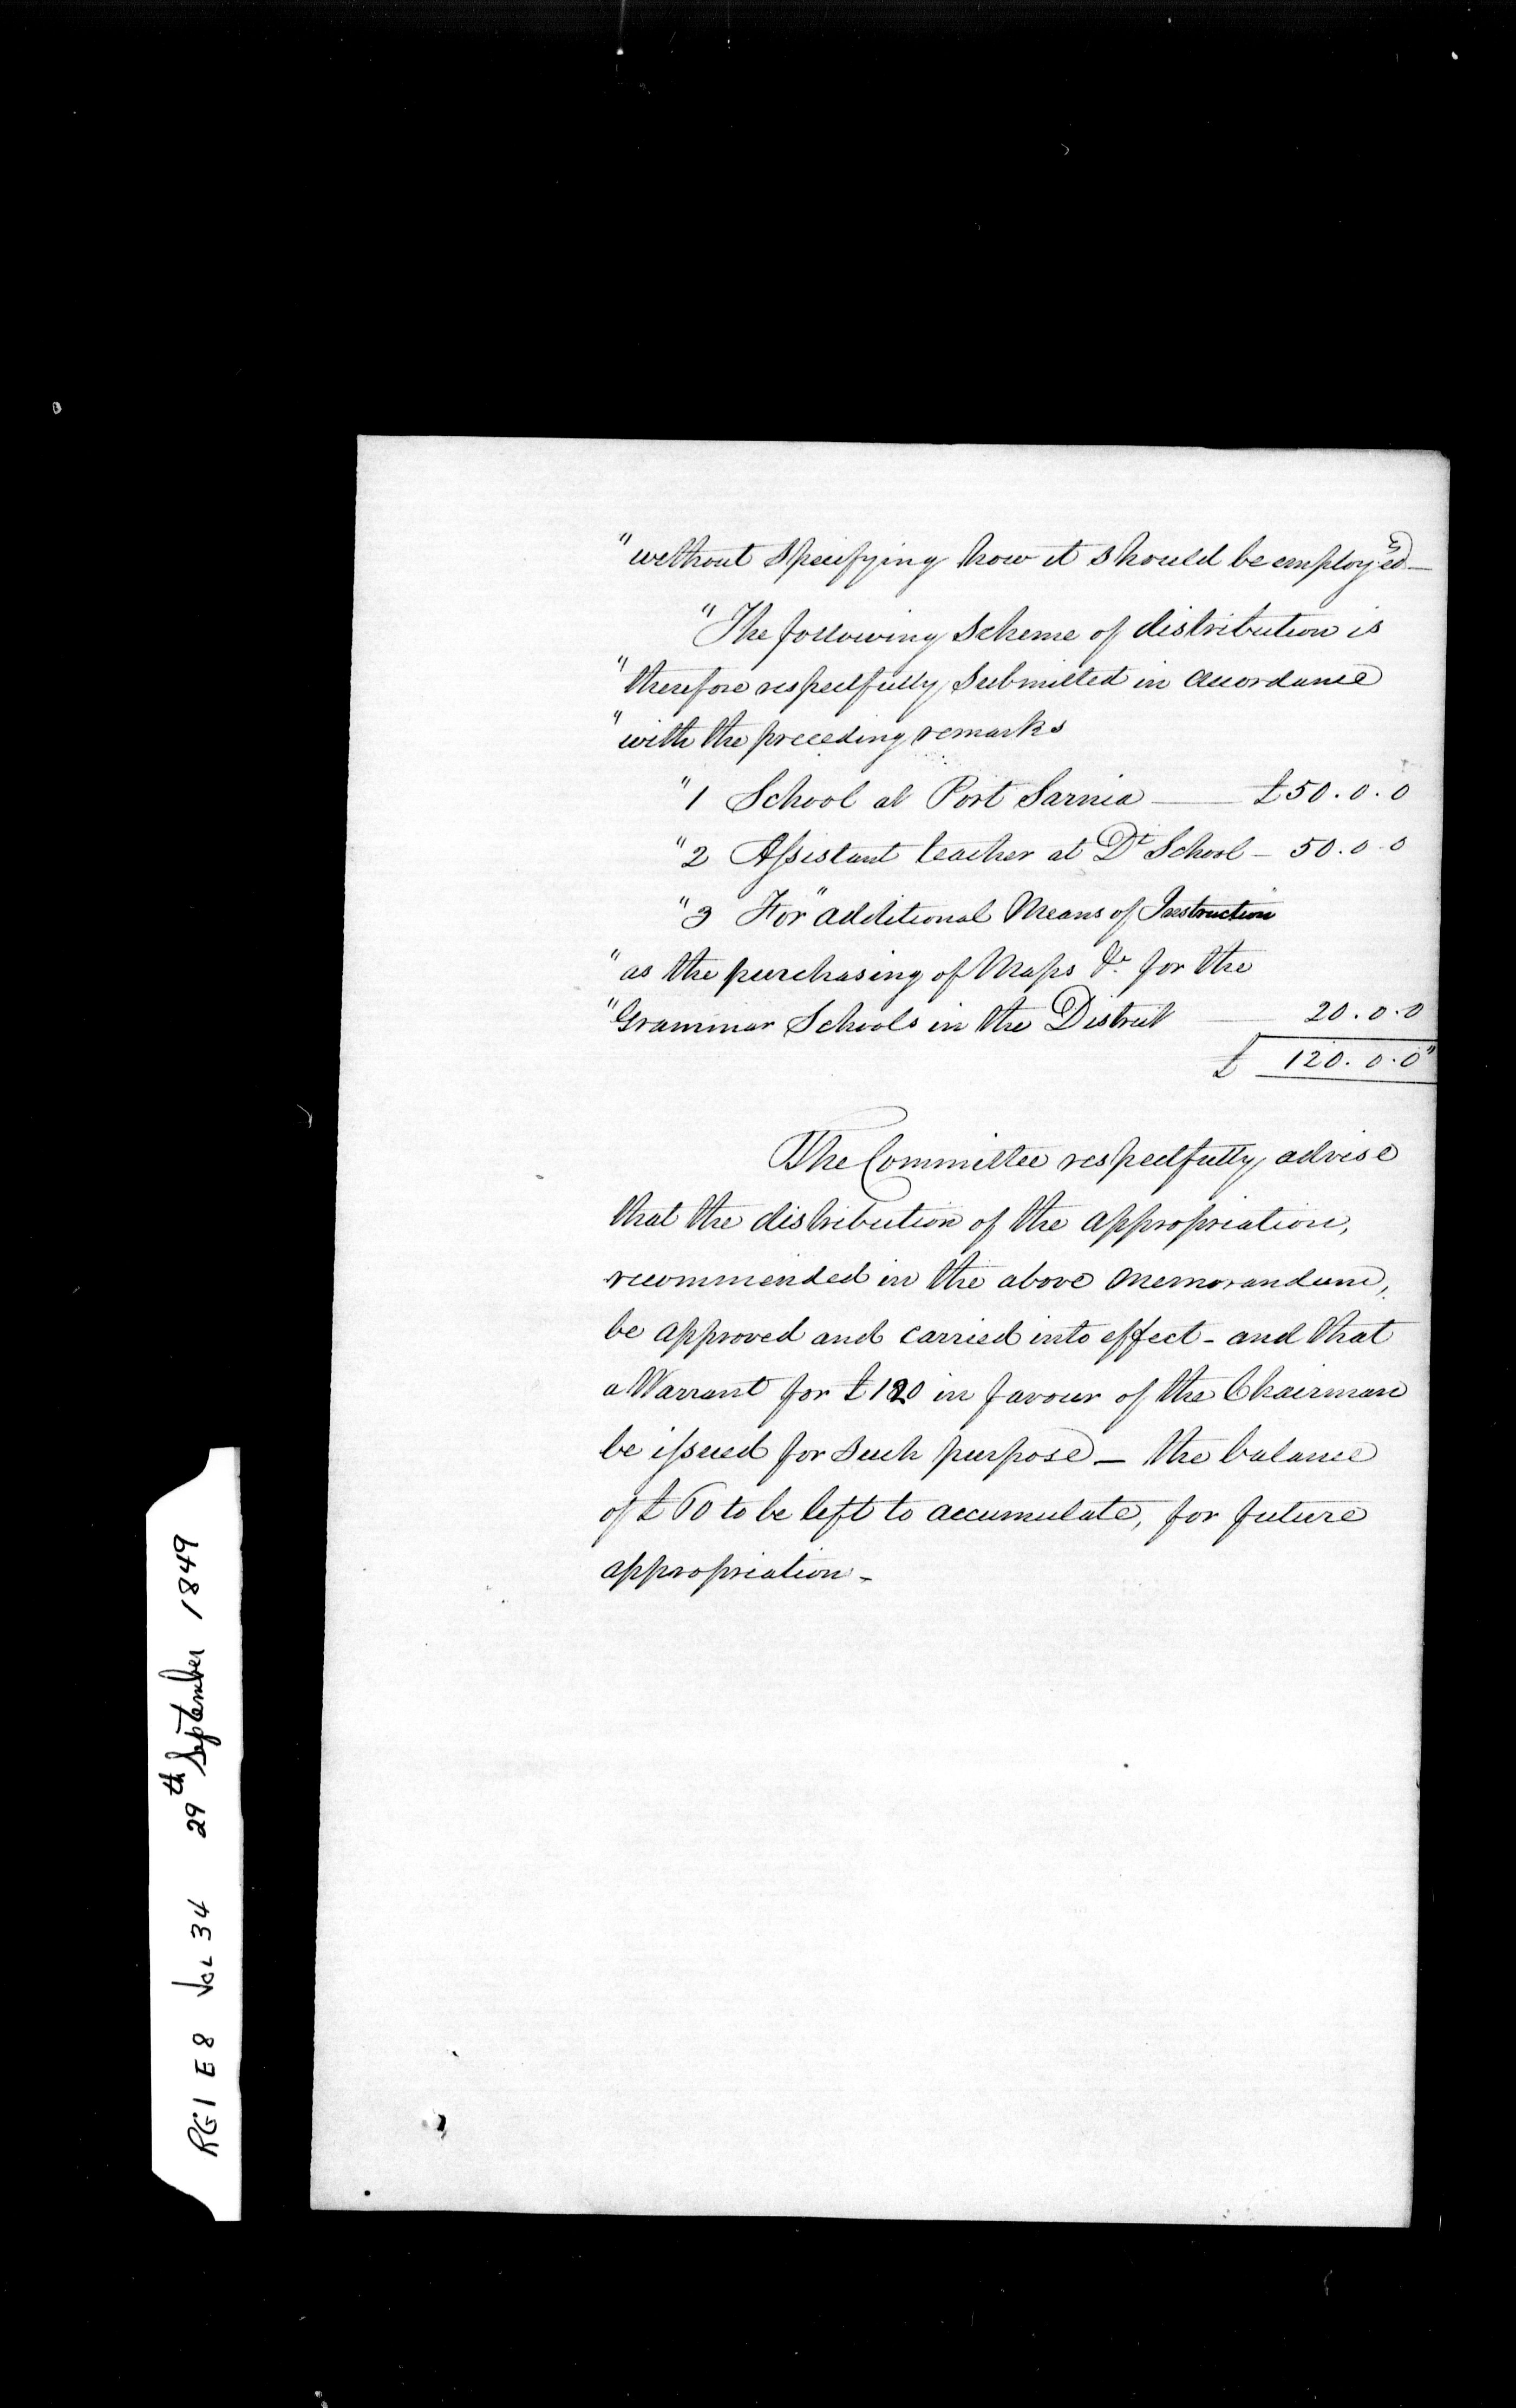 "without specifying how it should be employed —
"The following scheme of distribution is
"therefore respectfully submitted in accordance
"with the preceding remarks
"1 School at Port Sarnia —— £50.0.0
"2 Assistant teacher at Dt School — 50.0.0
"3 For "additional Means of Instruction"
"as the purchasing of Maps &c for the
"Grammar Schools in the District —— 20.0.0
£ 120.0.0"
The Committee respectfully advise
that the distribution of the appropriation,
recommended in the above memorandum,
be approved and carried into effect - and that
a Warrant for £120 in favour of the Chairman
be issued for such purpose — the balance
of £60 to be left to accumulate, for future
appropriation -
RG1 E8 Vol 34 29th September 1849